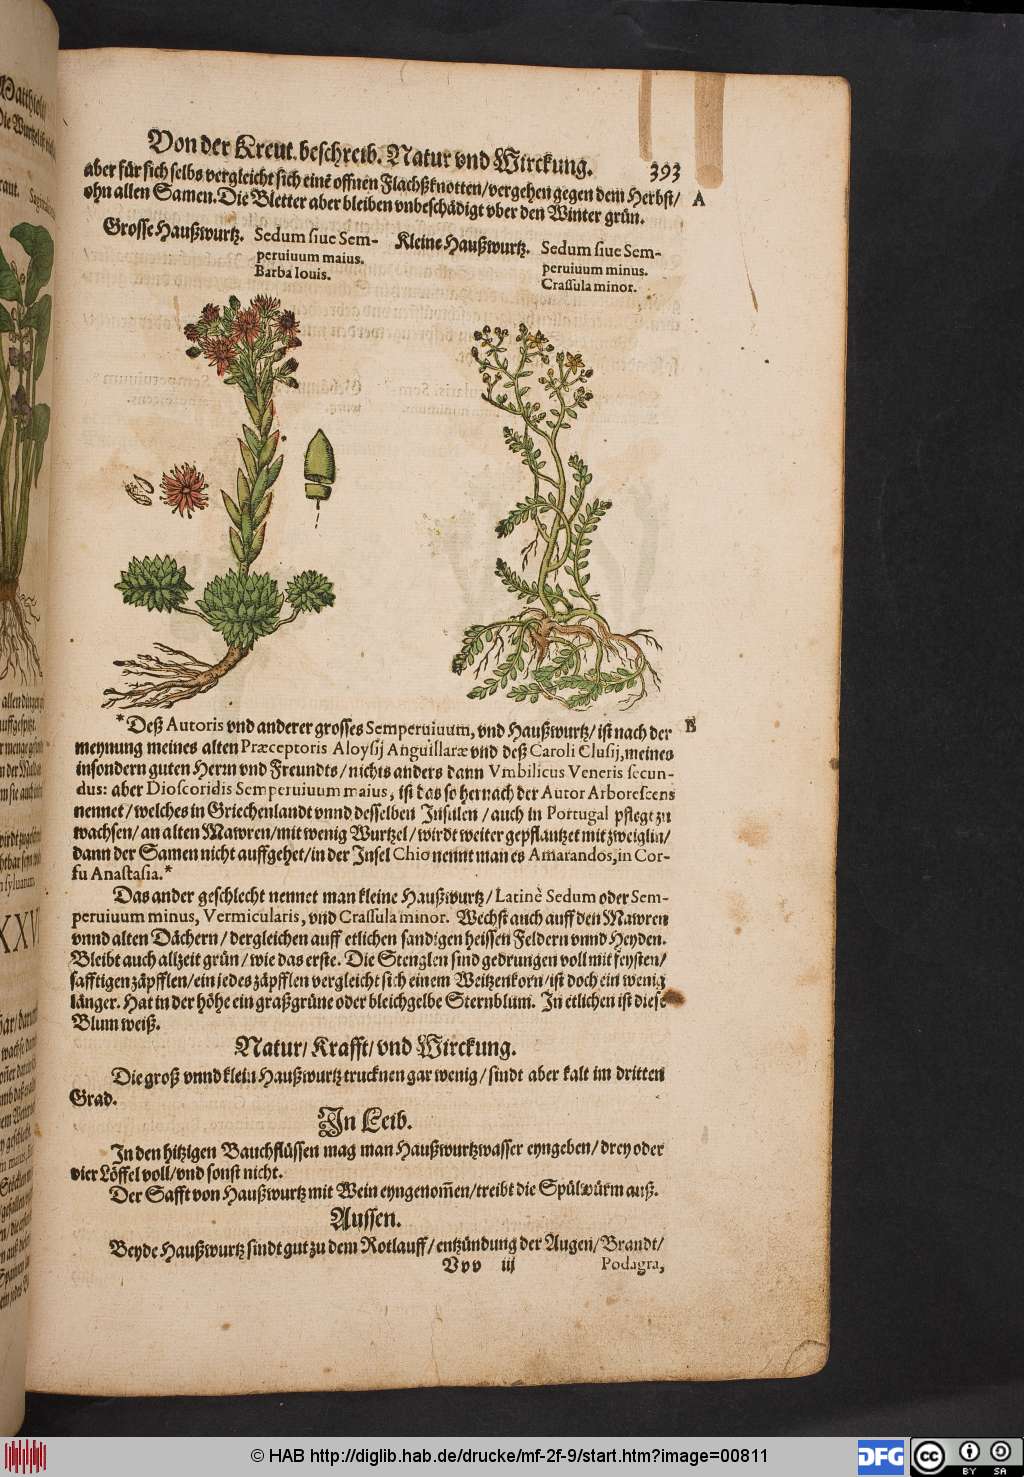 Von der Kreut. beschreib. Natur vnd Wirckung. 393
aber für sich selbs vergleicht sich einē offnen Flachßknotten/vergehen gegen dem Herbst/ A
ohn allen Samen. Die Bletter aber bleiben vnbeschädigt vber den Winter grün.
Grosse Haußwurtz. Sedum siue Sem-
peruiuum maius.
Barba Iouis.
Kleine Haußwurtz. Sedum siue Sem-
peruiuum minus.
Crassula minor.
*Deß Autoris vnd anderer grosses Semperuiuum, vnd Haußwurtz/ ist nach der B
meynung meines alten Præceptoris Aloysij Anguillaræ vnd deß Caroli Clusij, meines
insondern guten Herrn vnd Freundts/nichts anders dann Vmbilicus Veneris secun-
dus: aber Dioscoridis Semperuiuum maius, ist das so hernach der Autor Arborescens
nennet/welches in Griechenlandt vnnd desselben Insulen/auch in Portugal pflegt zu
wachsen/an alten Mawren/mit wenig Wurtzel/wirdt weiter gepflantzet mit zweiglin/
dann der Samen nicht auffgehet/in der Insel Chio nennt man es Amarandos, in Cor-
fu Anastasia.*
Das ander geschlecht nennet man kleine Haußwurtz/Latinè Sedum oder Sem-
peruiuum minus, Vermicularis, vnd Crassula minor. Wechst auch auff den Mawren
vnnd alten Dächern/dergleichen auff etlichen sandigen heissen Feldern vnnd Heyden.
Bleibt auch allzeit grün/wie das erste. Die Stenglen sind gedrungen voll mit feysten/
safftigen zäpfflen/ein jedes zäpfflen vergleicht sich einem Weitzenkorn/ist doch ein wenig
länger. Hat in der höhe ein graßgrüne oder bleichgelbe Sternblum. In etlichen ist diese
Blum weiß.
Natur/Krafft/vnd Wirckung.
Die groß vnnd klein Haußwurtz trucknen gar wenig/sindt aber kalt im dritten
Grad.
In Leib.
In den hitzigen Bauchflüssen mag man Haußwurtzwasser eyngeben/drey oder
vier Löffel voll/vnd sonst nicht.
Der Safft von Haußwurtz mit Wein eyngenom̄en/treibt die Spülwürm auß.
Aussen.
Beyde Haußwurtz sindt gut zu dem Rotlauff/entzündung der Augen/Brandt/
Vvv iij Podagra,
© HAB http://diglib.hab.de/drucke/mf-2f-9/start.htm?image=00811
DFG
cc BY SA